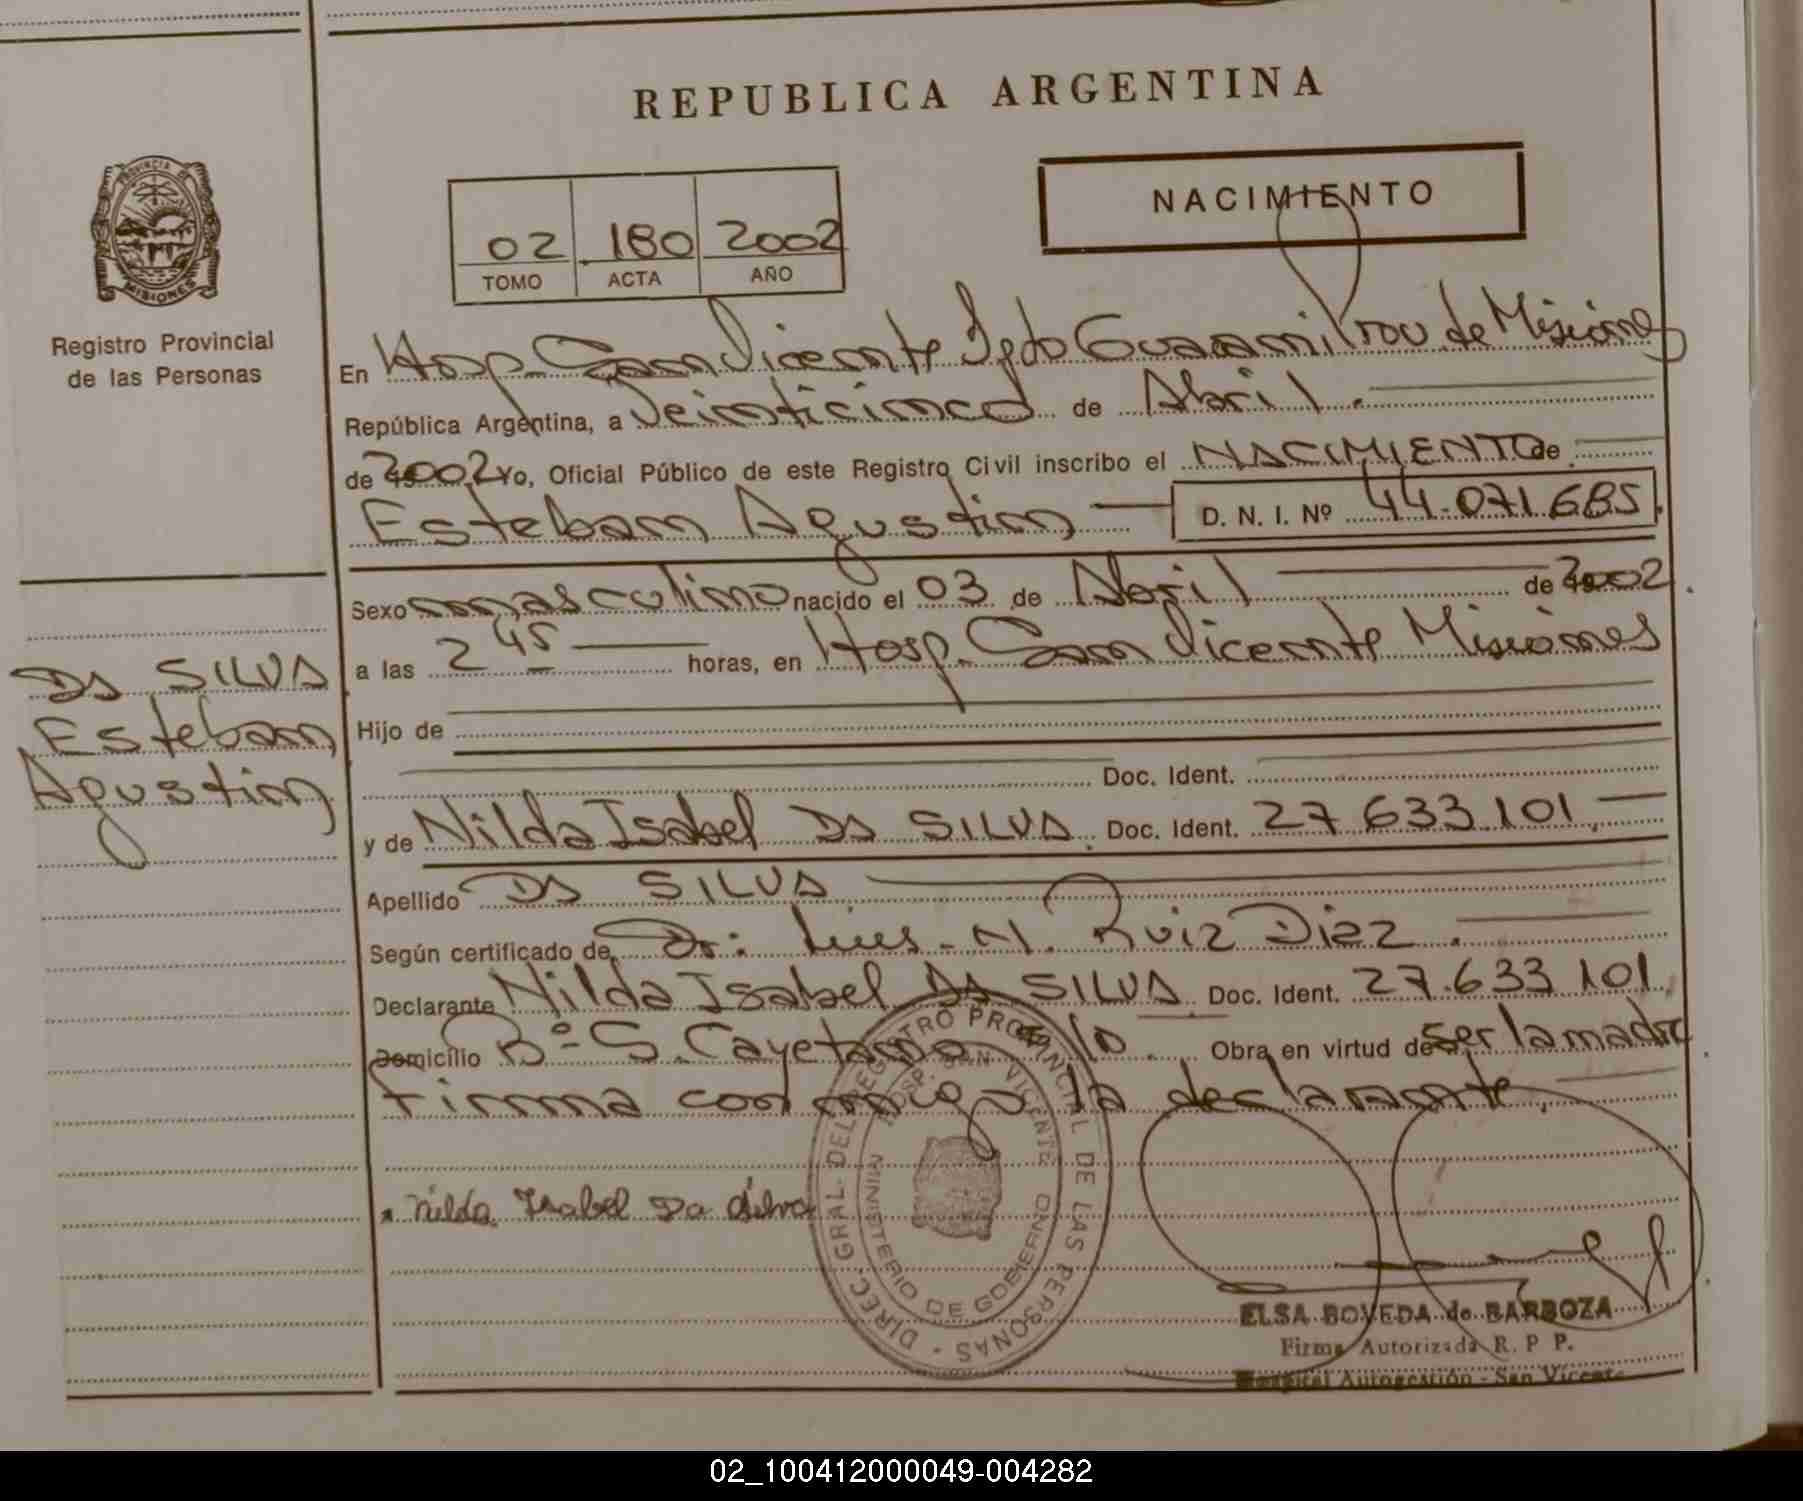 REPUBLICA ARGENTINA
PROVINCIA DE MISIONES
Registro Provincial
de las Personas
NACIMIENTO
02 180 2002
TOMO ACTA AÑO
En Hosp. San Vicente Dpto Guarani Prov. de Misiones
República Argentina, a Veinticinco de Abril.
de 2002 Yo, Oficial Público de este Registro Civil inscribo el NACIMIENTO de
Esteban Agustin D. N. I. Nº 44.071.685.
Sexo masculino nacido el 03 de Abril de 2002.
a las 2 45 horas, en Hosp. San Vicente Misiones
Hijo de
Doc. Ident.
y de Nilda Isabel DA SILVA. Doc. Ident. 27 633 101.
Apellido DA SILVA
Según certificado de Dr: Luis N. Ruiz Diaz.
Declarante Nilda Isabel DA SILVA. Doc. Ident. 27.633 101.
Domicilio Bº S. Cayetano Obra en virtud de ser la madre
Firma conmigo la declarante.
DA SILVA
Esteban
Agustin
Nilda Isabel Da Silva
DIREC. GRAL. DEL REGISTRO PROVINCIAL DE LAS PERSONAS
HOSP. SAN VICENTE
MINISTERIO DE GOBIERNO
ELSA BOVEDA de BARBOZA
Firma Autorizada R. P P.
Hospital Autogestión - San Vicente
02_100412000049-004282